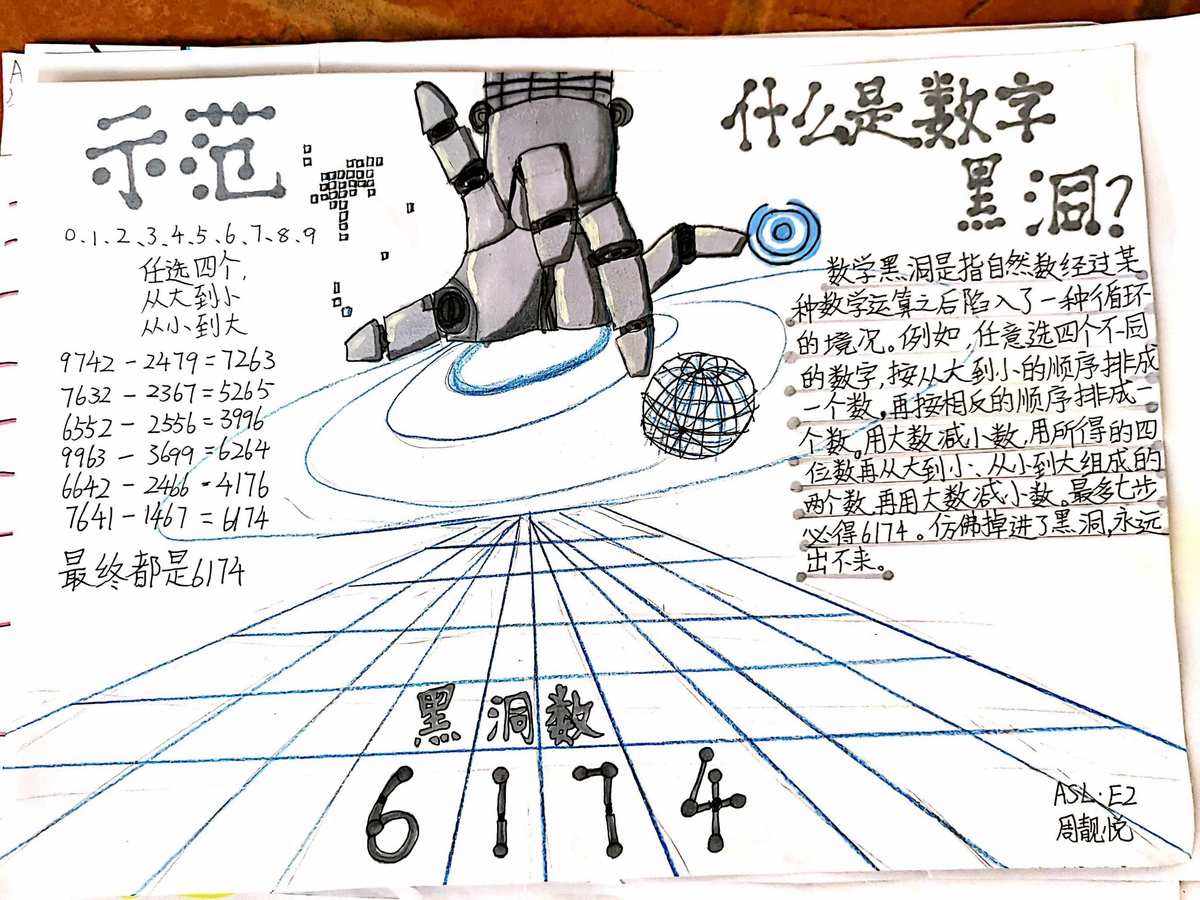 示范
0、1、2、3、4、5、6、7、8、9
任选四个，
从大到小
从小到大
9742-2479=7263
7632-2367=5265
6552-2556=3996
9963-3699=6264
6642-2466=4176
7641-1467=6174
最终都是6174
什么是数字
黑洞？
数学黑洞是指自然数经过某
种数学运算之后陷入了一种循环
的境况。例如，任意选四个不同
的数字，按从大到小的顺序排成
一个数，再按相反的顺序排成一
个数。用大数减小数，用所得的四
位数再从大到小、从小到大组成的
两个数，再用大数减小数。最多七步
必得6174。仿佛掉进了黑洞，永远
出不来。
黑洞数
6174
ASL·E2
周靓悦